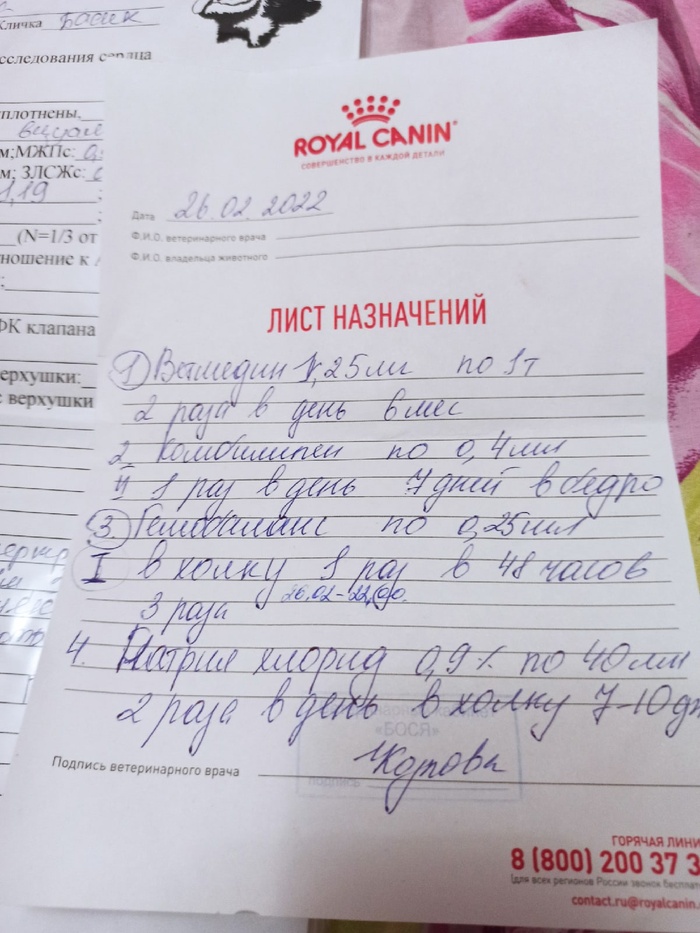 Кличка Басик
сследования сердца
плотнены,
м;МЖПс:
м; ЗЛСЖс:
1,19
(N=1/3 от
ношение к
ФК клапана
ерхушки:
с верхушки
ROYAL CANIN
СОВЕРШЕНСТВО В КАЖДОЙ ДЕТАЛИ
Дата 26.02.2022
Ф.И.О. ветеринарного врача
Ф.И.О. владельца животного
ЛИСТ НАЗНАЧЕНИЙ
1) Ветмедин 1,25мг по 1т
2 раза в день 6 мес
2. Комбилипен по 0,4мл
1 раз в день 7 дней в бедро
3. Гемобаланс по 0,25мл
I в холку 1 раз в 48 часов
3 раза 26.02-22.00.
4. Натрия хлорид 0,9% по 40мл
2 раза в день в холку 7-10 дн
«БОСЯ»
Подпись ветеринарного врача
подпись
ГОРЯЧАЯ ЛИНИ
8 (800) 200 37 3
(для всех регионов России звонок бесплат
contact.ru@royalcanin.